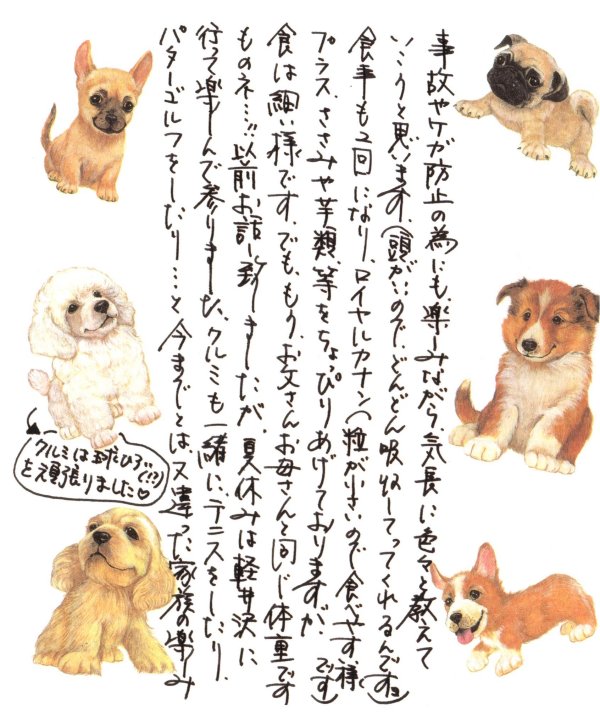 事故やケガ防止の為にも、楽しみながら、気長に色々と教えて
いこうと思います。(頭がいいので、どんどん吸収してってくれるんですョ)
食事も2回になり、ロイヤルカナン(粒が小さいので食べやすい様です)
プラス、ささみや芋類、等をちょっぴりあげておりますが、
食は細い様です。でも、もう、お父さんお母さんと同じ体重です
ものネ…!!以前お話し致しましたが、夏休みは軽井沢に
行って楽しんで参りました。クルミも一緒に、テニスをしたり、
パターゴルフをしたり…と今までとは、又違った家族の楽しみ
クルミは球ひろい(!?)
を頑張りました♡